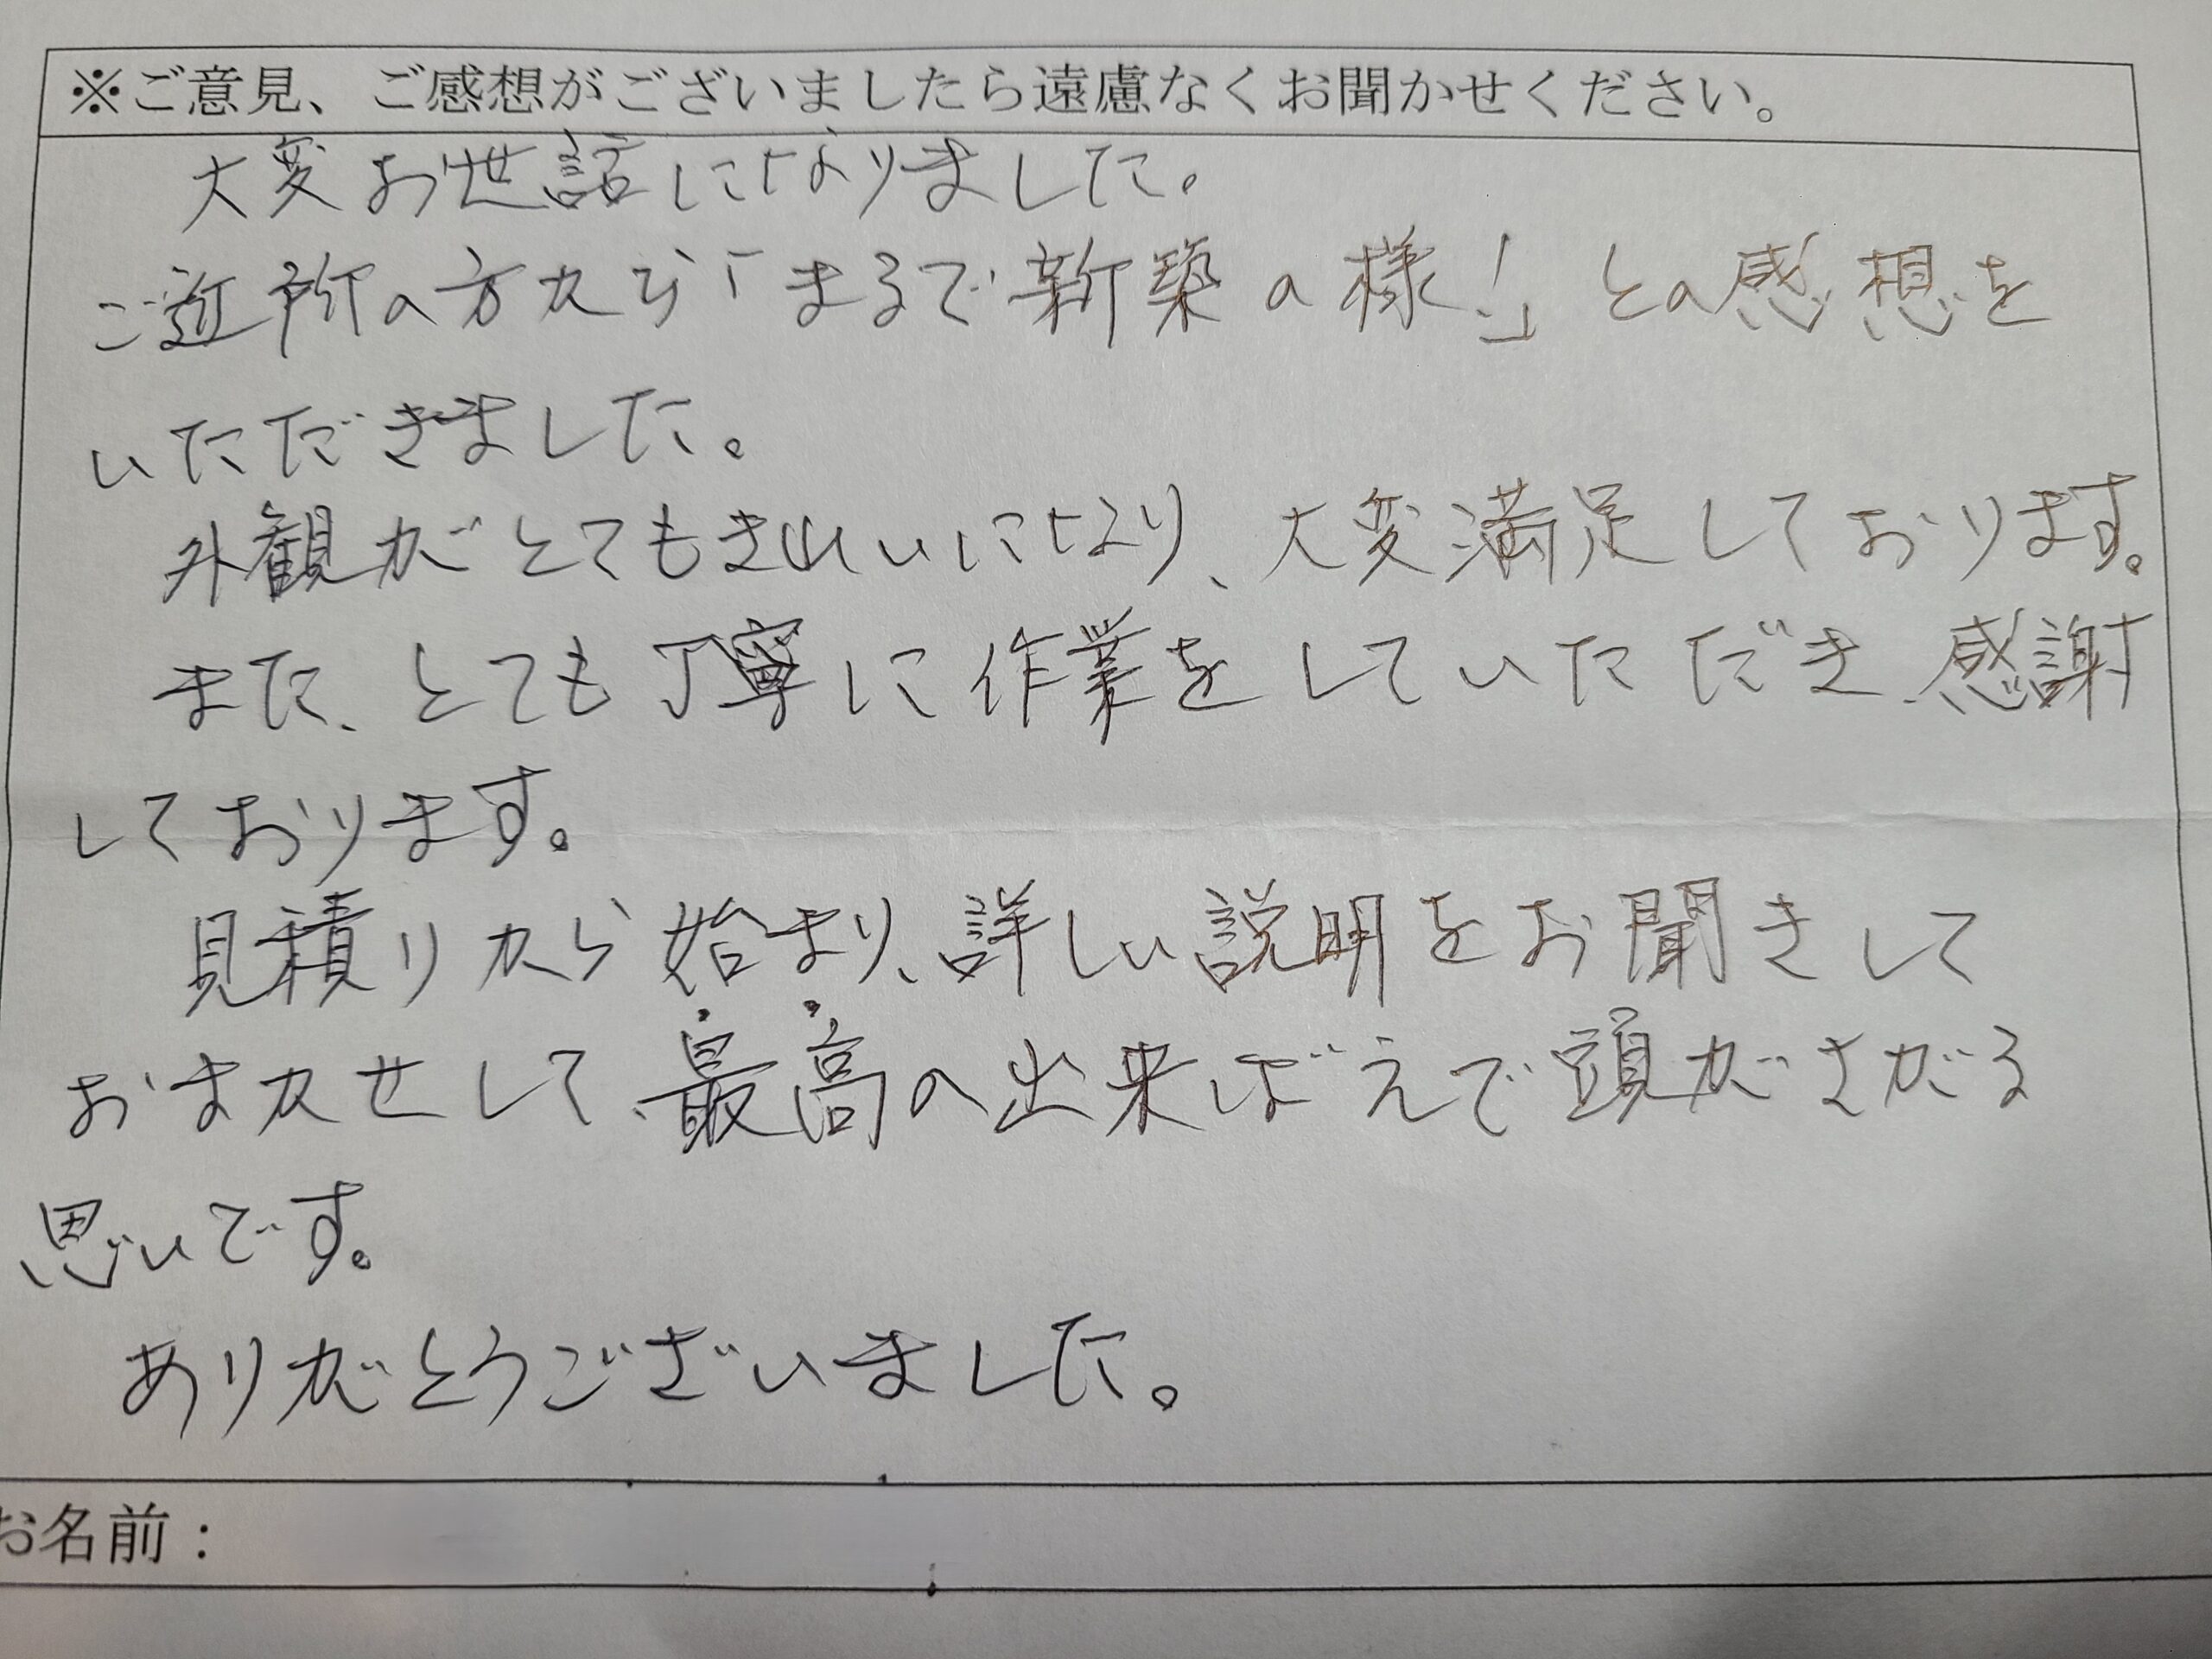 ※ご意見、ご感想がございましたら遠慮なくお聞かせください。
大変お世話になりました。
ご近所の方から「まるで新築の様!」との感想を
いただきました。
外観がとてもきれいになり、大変満足しております。
また、とても丁寧に作業をしていただき、感謝
しております。
見積りから始まり、詳しい説明をお聞きして
おまかせして、最高の出来ばえで頭がさがる
思いです。
ありがとうございました。
お名前：